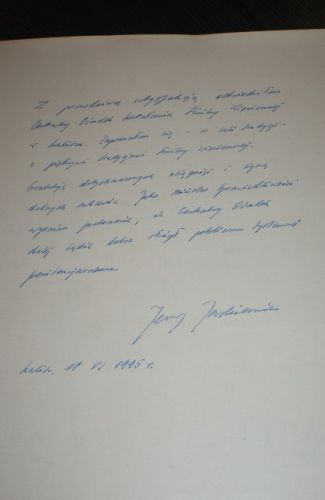 Z prawdziwą satysfakcją odwiedziłem
Centralny Ośrodek Szkolenia Służby Więziennej
w Kaliszu. Zapoznałem się - w
z pięknymi tradycjami Służby Więziennej.
Gratuluję dotychczasowych osiągnięć i życzę
dalszych sukcesów. Jako Minister Sprawiedliwości
wyrażam przekonanie, iż Centralny Ośrodek
dalej będzie dobrze służył polskiemu systemowi
penitencjarnemu.
Jerzy Jaskiernia
Kalisz, 18 VI 1995 r.